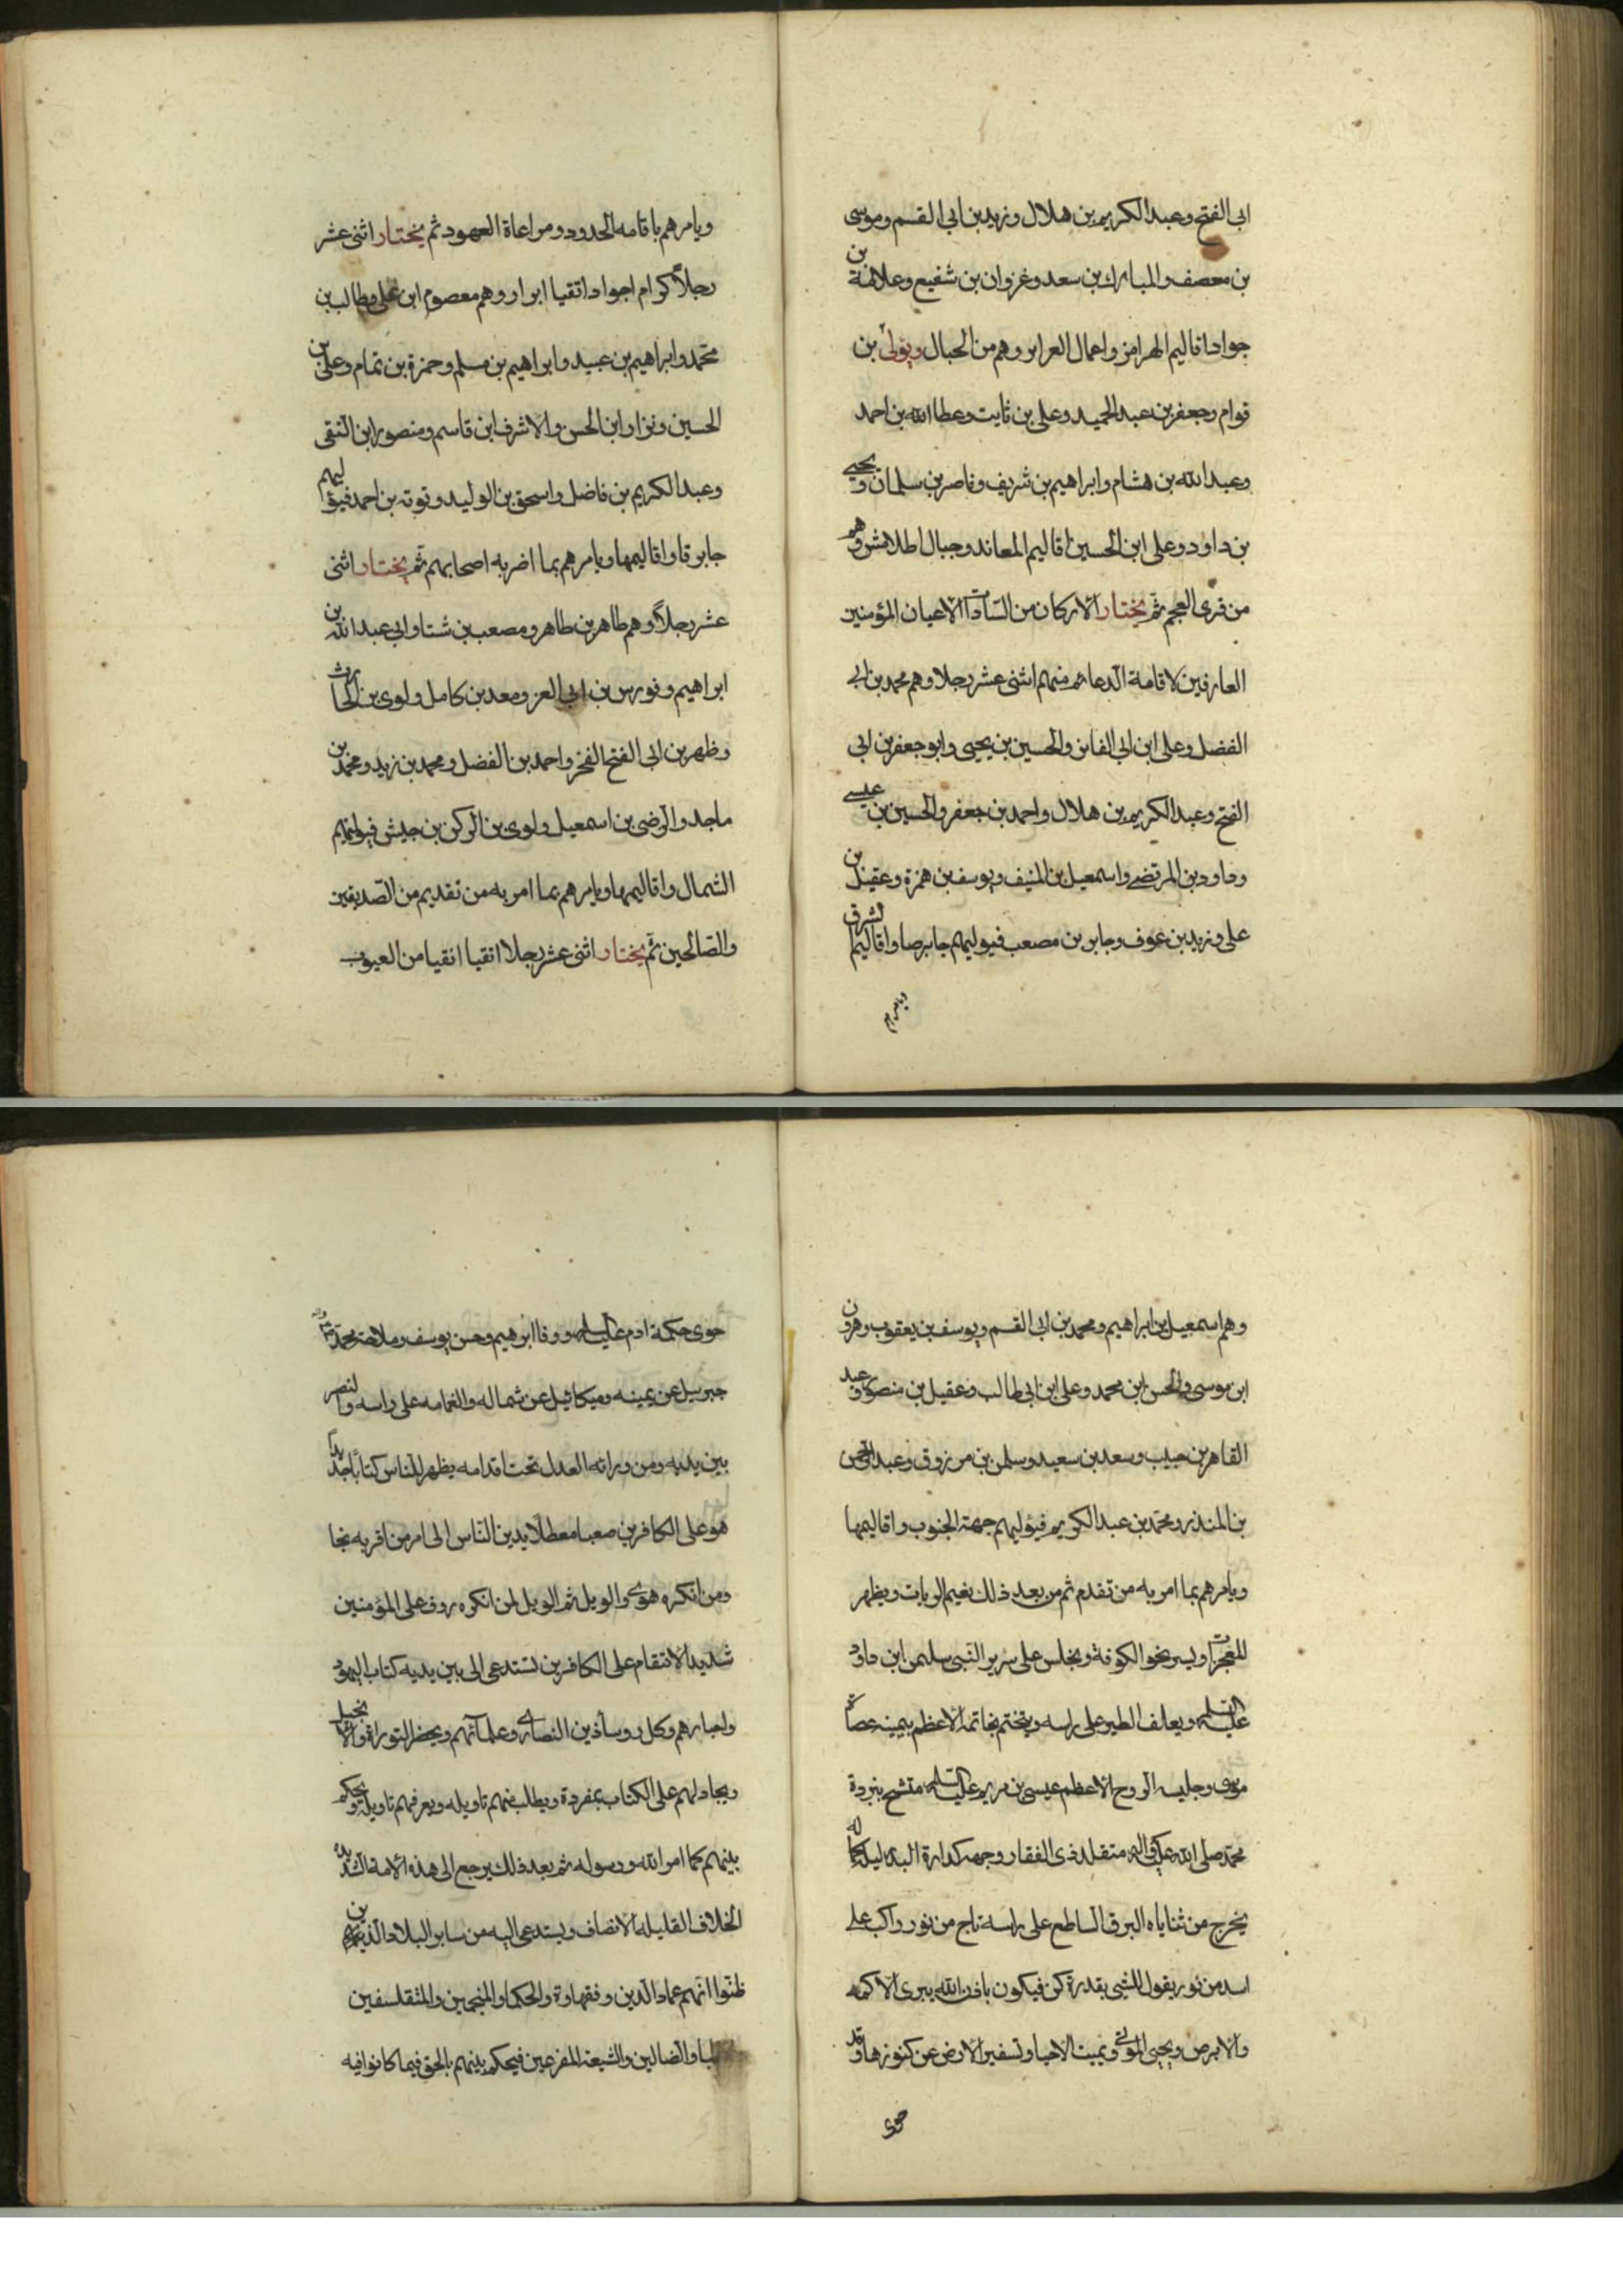 ابى الفتح وعبد الكريم بن هلال وزيد بن ابى القسم وموسى
بن معصف والمبارك بن سعد وغزوان بن شفيع وعلامة بن
جواد اقاليم الهرامز واعمال العرابر وهم من الجبال ويولى بن
قوام وجعفر بن عبد الحميد وعلى بن ثابت وعطا الله بن احمد
وعبد الله بن هشام وابراهيم بن شريف وناصر بن سليمان ويحيى
بن داود وعلى ابن الحسين اقاليم المعاند وجبال اطلامش وهم
من قرى العجم ثم يختار الاركان من السادات الاعيان المؤمنين
العارفين لاقامة الدعائم منهم اثنى عشر رجلا وهم محمد بن ابى
الفضل وعلى ابن ابى الفائز والحسين بن يحيى وابو جعفر بن ابى
الفتح وعبد الكريم بن هلال واحمد بن جعفر والحسين بن عيسى
وداود بن المرتضى واسمعيل بن المنيف ويوسف بن همزة وعقيل بن
على وزيد بن عوف وجابر بن مصعب فيوليهم جابرصا واقاليم الشرق
ويامرهم
ويامرهم باقامه الحدود ومراعاة العهود ثم يختار اثنى عشر
رجلاً كرام اجواد اتقيا ابرار وهم معصوم ابن على وطالب بن
محمد وابراهيم بن عبيد وابراهيم بن مسلم وحمزة بن تمام وعلى بن
الحسين ونزار ابن الحسن والاشرف ابن قاسم ومنصور ابن التقى
وعبد الكريم بن فاضل واسحق بن الوليد وتوته بن احمد فيوليهم
جابرقا واقاليمها ويامرهم بما اضر به اصحابهم ثم يختار اثنى
عشر رجلاً وهم طاهر بن طاهر ومصعب بن شتا وابى عبد الله بن
ابراهيم وفورس بن ابى العز ومعد بن كامل ولوى بن الحارث
وظهر بن ابى الفتح الفخر واحمد بن الفضل ومحمد بن زيد ومحمد بن
ماجد والرضى بن اسمعيل ولوى بن الركن بن جيش فيوليهم
الشمال واقاليمها ويامرهم بما امر به من تقديم من الصديقين
والصالحين ثم يختار اثنى عشر رجلا اتقيا انقيا من العيوب
وهم اسمعيل بن ابراهيم ومحمد بن ابى القسم ويوسف بن يعقوب وهرون
ابن موسى والحسن ابن محمد وعلى ابن ابى طالب وعقيل بن منصور وعبد
القاهر بن حبيب وسعد بن سعيد وسلمن بن مرزوق وعبد الرحمن
بن المنذر ومحمد بن عبد الكريم فيوليهم جهة الجنوب واقاليمها
ويامرهم بما امر به من تقدم ثم من بعد ذلك يقيم الرايات ويظهر
المعجزات ويسير نحو الكوفة ويجلس على سرير النبى سليمن ابن داود
عليه السلم ويعلف الطير على راسه ويتختم بخاتمه الاعظم بيمينه عصاة
موسى وجليسه الروح الاعظم عيسى بن مريم عليه السلم متشح ببردة
محمد صلى الله عليه واله متقلد ذى الفقار وجهه كدارة البدر ليله كماله
يخرج من ثناياه البرق الساطع على راسه تاج من نور راكب على
اسد من نور يقول للشيى بقدرة كن فيكون باذن الله يبرى الاكمه
والابرص ويحيى الموتى ويميت الاحيا وتسفير الارض عن كنوزها وقد
حوى
حوى حكمة ادم عليه السلم ووفا ابرهيم وحسن يوسف وملاحة محمد
جبريل عن يمينه وميكائيل عن شماله والغمامه على راسه والنصر
بين يديه ومن ورائه العدل تحت اقدامه يظهر للناس كتاباً جديداً
هو على الكافرين صعبا معطلاً يدين الناس الى امر من اقر به نجا
ومن انكره هوى والويل ثم الويل لمن انكره روف على المؤمنين
شديد الانتقام على الكافرين تستدعى الى بين يديه كتاب اليهود
واحبارهم وكل روسا دين النصارى وعلمآئهم ويحضر التوراة والانجيل
ويجادلهم على الكتاب بمفردة ويطلب منهم تاويله ويعرفهم تاويله ويحكم
بينهم كما امر الله ورسوله ثم بعد ذلك يرجع الى هذه الامة الشديدة
الخلاف القليله الانصاف ويستدعى اليه من ساير البلاد الذين
ظنوا انهم عماد الدين وفقهاوة والحكما والمنجمين والمتفلسفين
والضالين والشيعه المفرعين فيحكم بينهم بالحق فيما كانوا فيه